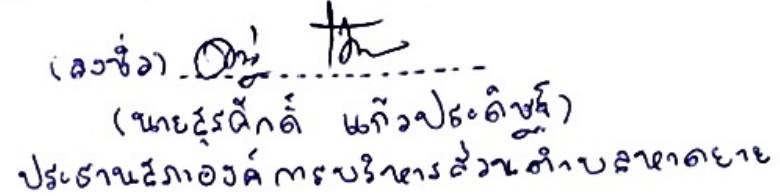 (ลงชื่อ)
(นายสุรศักดิ์ แก้วประดิษฐ์)
ประธานสภาองค์การบริหารส่วนตำบลหาดยาย